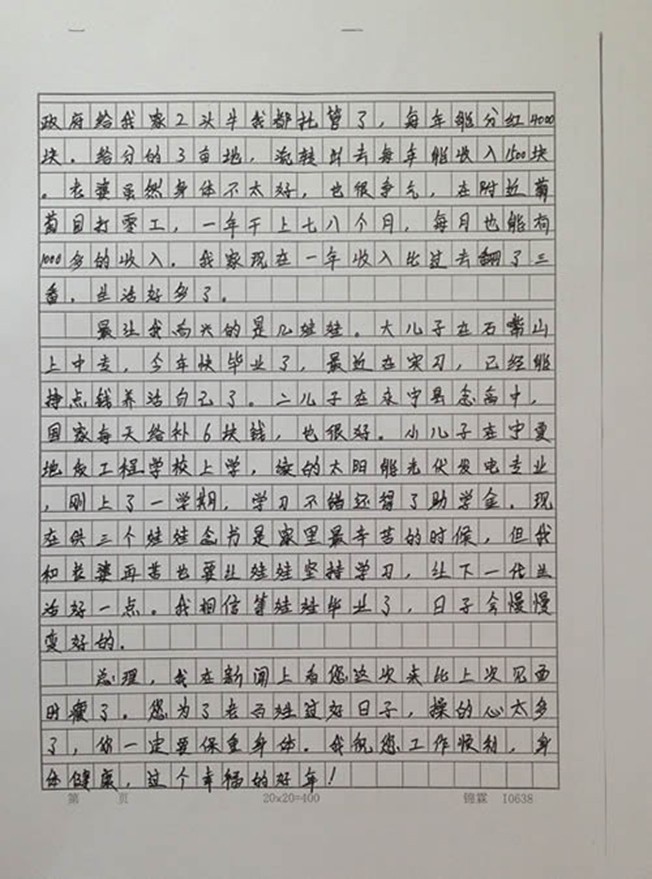 政府给我家2头牛我都托管了，每年能分红4000
块。给分的3亩地，流转出去每年能收入1500块
。老婆虽然身体不太好，也很争气，在附近葡
萄园打零工，一年干上七八个月，每月也能有
1000多的收入。我家现在一年收入比过去翻了三
番，生活好多了。
最让我高兴的是几娃娃。大儿子在石嘴山
上中专，今年快毕业了，最近在实习，已经能
挣点钱养活自己了。二儿子在永宁县念高中，
国家每天给补6块钱，也很好。小儿子在宁夏
地质工程学校上学，读的太阳能光伏发电专业
，刚上了一学期，学习不错还得了助学金。现
在供三个娃娃念书是家里最辛苦的时候，但我
和老婆再苦也要让娃娃坚持学习，让下一代生
活好一点。我相信等娃娃毕业了，日子会慢慢
变好的。
总理，我在新闻上看您这次来比上次见面
时瘦了。您为了老百姓过好日子，操的心太多
了，您一定要保重身体。我祝您工作顺利，身
体健康，过个幸福的好年！
第 页 20×20=400 锦霖 I0638